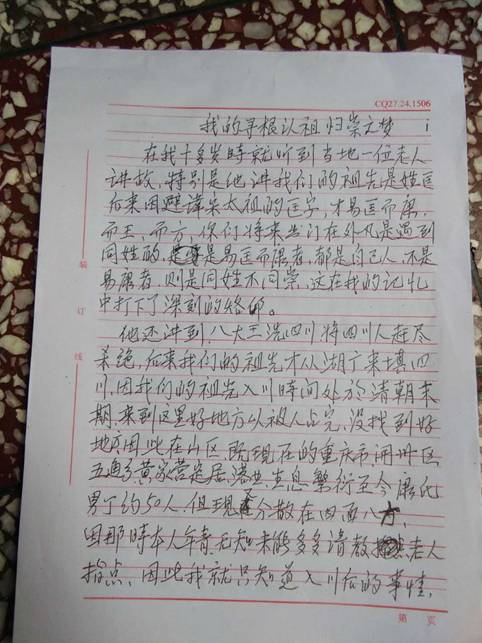 CQ27.24.1506
我的寻根认祖归崇之梦 1
在我十多岁時就听到当地一位老人
讲故,特别是他讲我们的祖先是姓匡
后来因避讳宋太祖的匡字,才易匡而康,
而王、而方,你们将来出门在外凡是遇到
同姓的,是易匡而康者,都是自己人,不是
易康者,则是同姓不同崇,这在我的记忆
中打下了深刻的烙印。
他还讲到,八大王洗四川将四川人赶尽
杀绝,后来我们的祖先才从湖广来填四
川,因我们的祖先入川時间处於清朝末
期,来到这里好地方以被人占完,没找到好
地,因此在山区,既现在的重庆市开州区
五通乡黄家营定居,落业生息繁衍至今康氏
男丁约50人,但现在分散在四面八方,
因那時本人年青无知未能多多请教老人
指点,因此我就只知道入川后的事情,
装订线
第 页